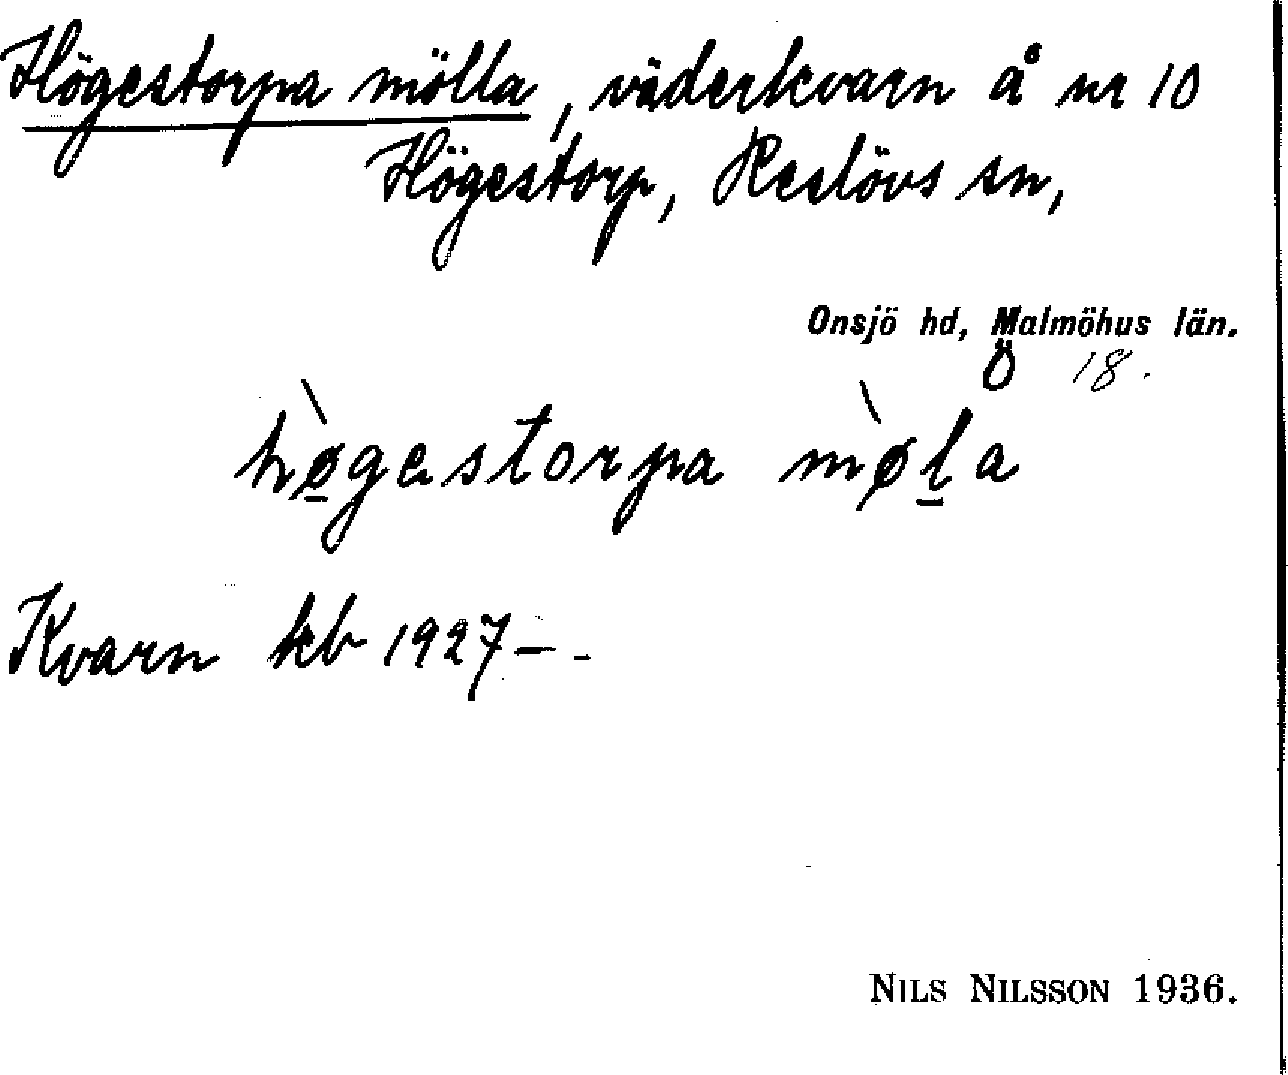 Högestorpa mölla, väderkvarn å nr 10
Högestorp, Reslövs sn,
Onsjö hd, Malmöhus län.
Ö 18.
hø̠̀gestorpa mø̀l̠a
Kvarn kb 1927–-
NILS NILSSON 1936.